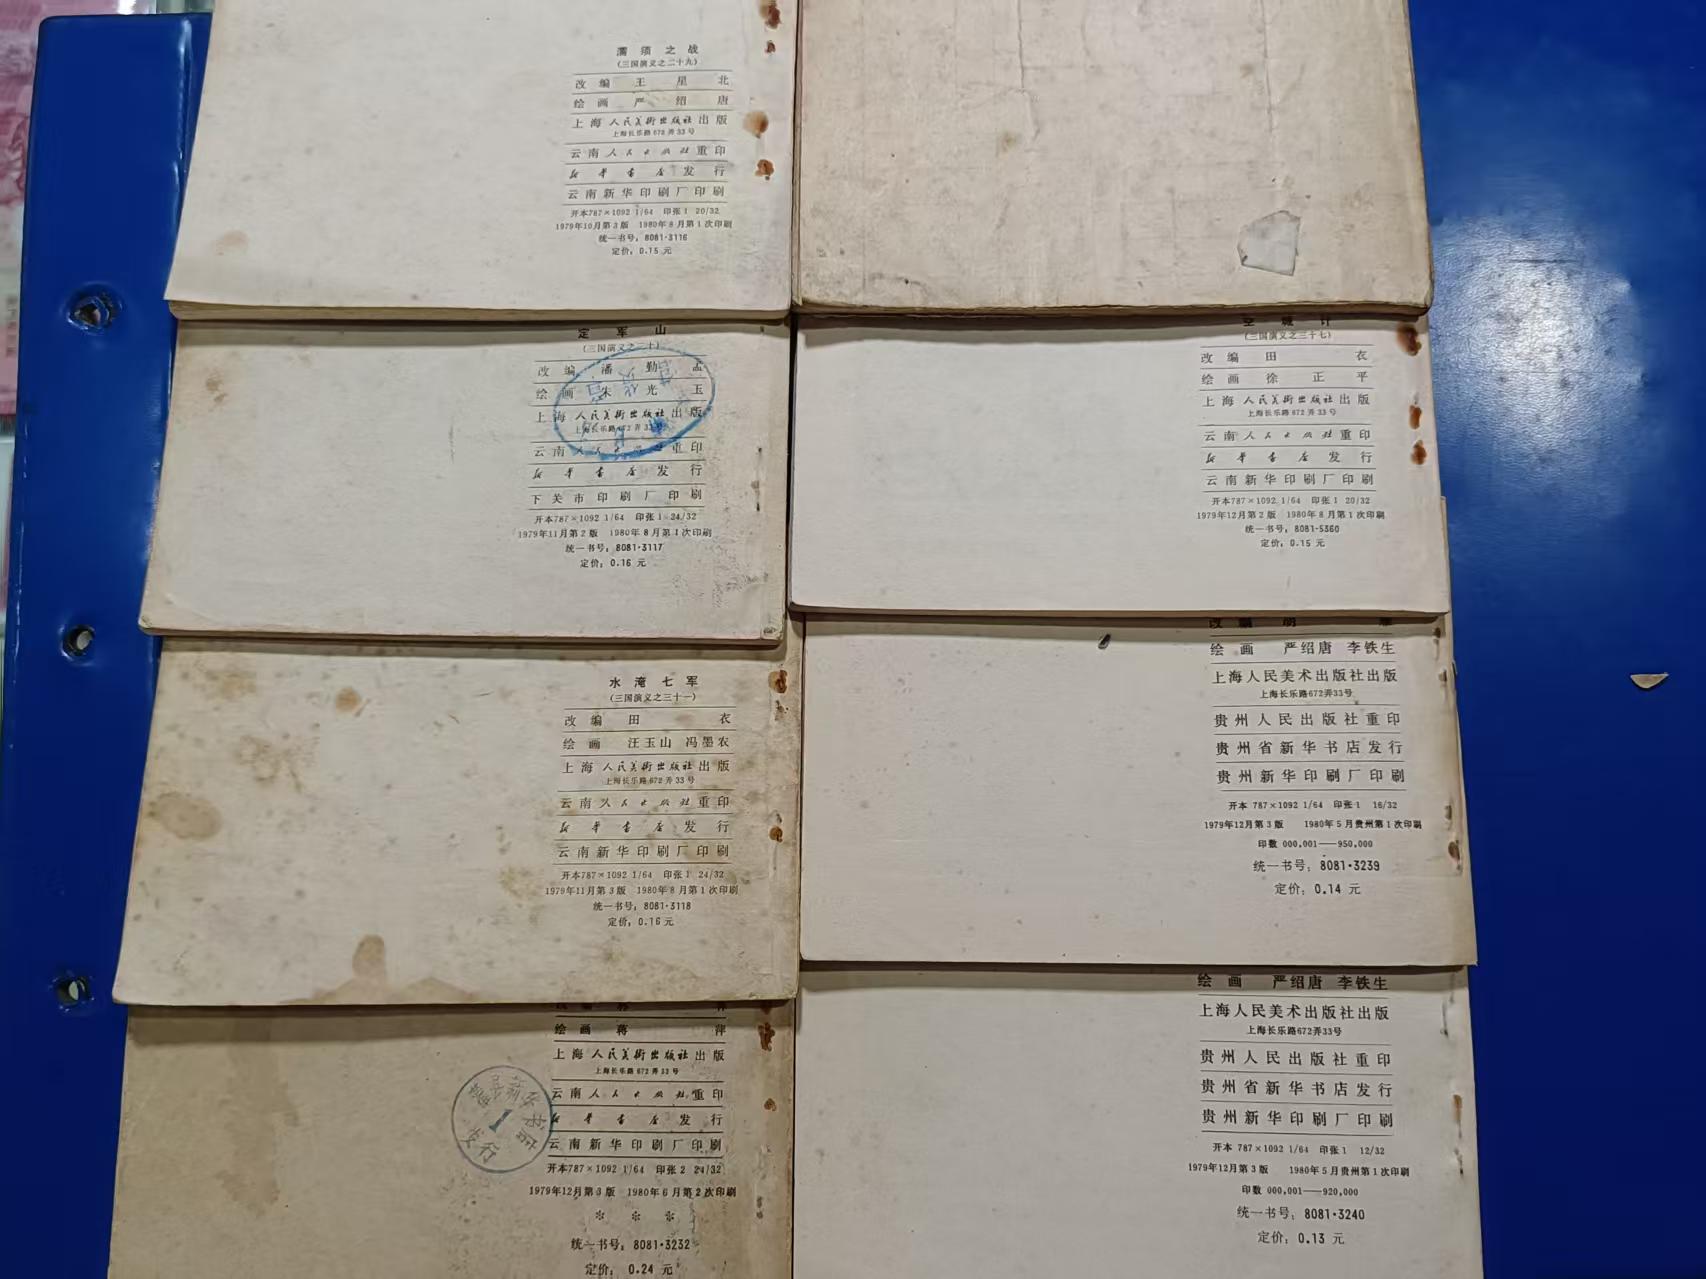 濡须之战
(三国演义之二十九)
改编 王星北
绘画 严绍唐
上海人民美術出版社出版
上海长乐路672弄33号
云南人民出版社重印
新华书店发行
云南新华印刷厂印刷
开本787×1092 1/64 印张1 20/32
1979年10月第3版 1980年8月第1次印刷
统一书号：8081·3116
定价：0.15元
定军山
(三国演义之三十)
改编 潘勤孟
绘画 朱光玉
上海人民美術出版社出版
上海长乐路672弄33号
云南人民出版社重印
新华书店发行
下关市印刷厂印刷
开本787×1092 1/64 印张1 24/32
1979年11月第2版 1980年8月第1次印刷
统一书号：8081·3117
定价：0.16元
水淹七军
(三国演义之三十一)
改编 田衣
绘画 汪玉山 冯墨农
上海人民美術出版社出版
上海长乐路672弄33号
云南人民出版社重印
新华书店发行
云南新华印刷厂印刷
开本787×1092 1/64 印张1 24/32
1979年11月第3版 1980年8月第1次印刷
统一书号：8081·3118
定价：0.16元
改编
绘画 蒋萍
上海人民美術出版社出版
上海长乐路672弄33号
云南人民出版社重印
新华书店发行
云南新华印刷厂印刷
开本787×1092 1/64 印张2 24/32
1979年12月第3版 1980年6月第2次印刷
* * *
统一书号：8081·3232
定价：0.24元
县新华书店
1
发行
空城计
(三国演义之三十七)
改编 田衣
绘画 徐正平
上海人民美術出版社出版
上海长乐路672弄33号
云南人民出版社重印
新华书店发行
云南新华印刷厂印刷
开本787×1092 1/64 印张1 20/32
1979年12月第2版 1980年8月第1次印刷
统一书号：8081·5360
定价：0.15元
改编
绘画 严绍唐 李铁生
上海人民美术出版社出版
上海长乐路672弄33号
贵州人民出版社重印
贵州省新华书店发行
贵州新华印刷厂印刷
开本 787×1092 1/64 印张1 16/32
1979年12月第3版 1980年5月贵州第1次印刷
印数 000,001——950,000
统一书号：8081·3239
定价：0.14元
绘画 严绍唐 李铁生
上海人民美术出版社出版
上海长乐路672弄33号
贵州人民出版社重印
贵州省新华书店发行
贵州新华印刷厂印刷
开本 787×1092 1/64 印张1 12/32
1979年12月第3版 1980年5月贵州第1次印刷
印数 000,001——920,000
统一书号：8081·3240
定价：0.13元